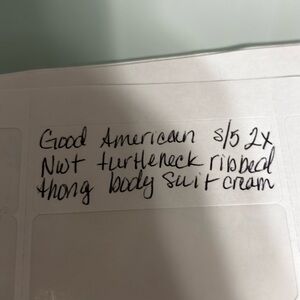 Good American s/5 2x
Nwt turtleneck ribbed
thong body suit cream